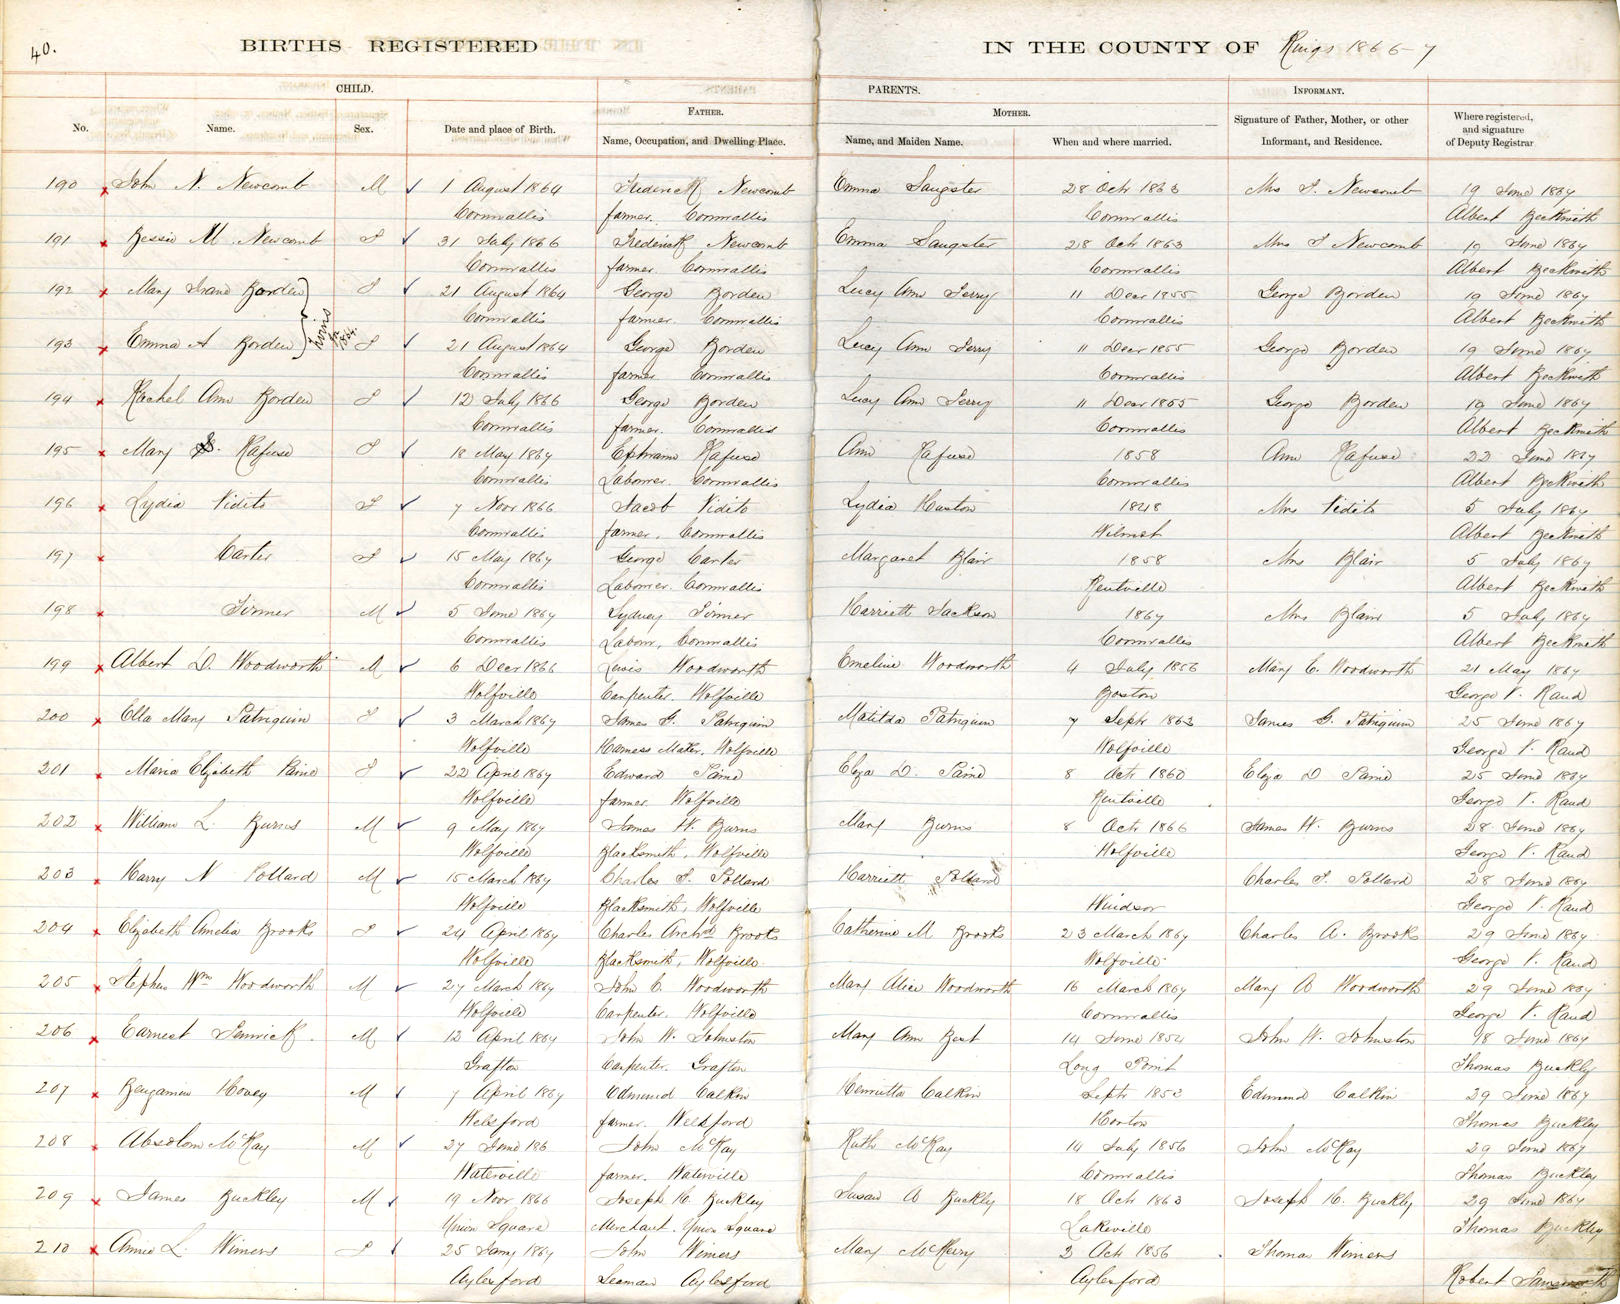 40.
BIRTHS REGISTERED IN THE COUNTY OF Kings 1866-7
CHILD. PARENTS. INFORMANT.
FATHER. MOTHER.
No. Name. Sex. Date and place of Birth. Name, Occupation, and Dwelling Place. Name, and Maiden Name. When and where married. Signature of Father, Mother, or other Informant, and Residence. Where registered, and signature of Deputy Registrar
190 John N. Newcomb M 1 August 1864 Frederick Newcomb Emma Sangster 28 Octr 1863 Mrs F. Newcomb 19 June 1867
Cornwallis farmer. Cornwallis Cornwallis Albert Beckwith
191 Bessie M. Newcomb F 31 July 1866 Frederick Newcomb Emma Sangster 28 Octr 1863 Mrs F Newcomb 19 June 1867
Cornwallis farmer. Cornwallis Cornwallis Albert Beckwith
192 Mary Borden F 21 August 1864 George Borden Lucy Ann Terry 11 Decr 1855 George Borden 19 June 1867
Twins in 1864.
Cornwallis farmer. Cornwallis Cornwallis Albert Beckwith
193 Emma A Borden F 21 August 1864 George Borden Lucy Ann Terry 11 Decr 1855 George Borden 19 June 1867
Cornwallis farmer Cornwallis Cornwallis Albert Beckwith
194 Rachel Ann Borden F 12 July 1866 George Borden Lucy Ann Terry 11 Decr 1855 George Borden 19 June 1867
Cornwallis farmer. Cornwallis Cornwallis Albert Beckwith
195 Mary Rafuse F 18 May 1867 Ephraim Rafuse Ann Rafuse 1858 Ann Rafuse 22 June 1867
Cornwallis Laborer. Cornwallis Cornwallis Albert Beckwith
196 Lydia Vidito F 7 Novr 1866 Jacob Vidito Lydia Huston 1848 Mrs Vidito 5 July 1867
Cornwallis farmer. Cornwallis Wilmot Albert Beckwith
197 Carter F 15 May 1867 George Carter Margaret Blair 1858 Mrs Blair 5 July 1867
Cornwallis Laborer. Cornwallis Kentville Albert Beckwith
198 Turner M 5 June 1867 Sydney Turner Harriett Jackson 1864 Mrs Blair 5 July 1867
Cornwallis Laborer. Cornwallis Cornwallis Albert Beckwith
199 Albert D. Woodworth M 6 Decr 1866 Lewis Woodworth Emeline Woodworth 4 July 1856 Mary C. Woodworth 21 May 1867
Wolfville Carpenter. Wolfville Boston George V. Rand
200 Ella Mary Patriquin F 3 March 1867 James G. Patriquin Matilda Patriquin 7 Septr 1863 James G. Patriquin 25 June 1867
Wolfville Harness Maker. Wolfville Wolfville George V. Rand
201 Maria Elizabeth Paine F 22 April 1867 Edward Paine Eliza D. Paine 8 Octr 1860 Eliza D Paine 25 June 1867
Wolfville farmer. Wolfville Kentville George V. Rand
202 William L. Burns M 9 May 1867 James W. Burns Mary Burns 8 Octr 1866 James W. Burns 28 June 1867
Wolfville Blacksmith. Wolfville Wolfville George V. Rand
203 Harry N Pollard M 15 March 1867 Charles F. Pollard Harriett Pollard Charles F. Pollard 28 June 1867
Wolfville Blacksmith. Wolfville Windsor George V. Rand
204 Elizabeth Amelia Brooks F 24 April 1867 Charles Archd Brooks Catherine M Brooks 23 March 1867 Charles A. Brooks 29 June 1867
Wolfville Blacksmith. Wolfville Wolfville George V. Rand
205 Stephen Wm Woodworth M 27 March 1867 John C. Woodworth Mary Alice Woodworth 16 March 1867 Mary A Woodworth 29 June 1867
Wolfville Carpenter. Wolfville Cornwallis George V. Rand
206 Earnest Fenwick. M 12 April 1867 John W. Johnston Mary Ann Best 14 June 1854 John W. Johnston 18 June 1867
Grafton Carpenter. Grafton Long Point Thomas Buckley
207 Benjamin Hovey M 7 April 1867 Edmund Calkin Henrietta Calkin Septr 1853 Edmund Calkin 29 June 1867
Welsford farmer. Welsford Horton Thomas Buckley
208 Absolom McKay M 27 June 186 John McKay Ruth McKay 14 July 1856 John McKay 29 June 1867
Waterville farmer. Waterville Cornwallis Thomas Buckley
209 James Buckley M 19 Novr 1866 Joseph C. Buckley Susan A Buckley 18 Octr 1863 Joseph C. Buckley 29 June 1867
Union Square Merchant. Union Square Lakeville Thomas Buckley
210 Annie L. Winers F 25 Jany 1867 John Winers Mary McKery 3 Octr 1856 Thomas Winers
Aylesford Seaman Aylesford Aylesford Robert